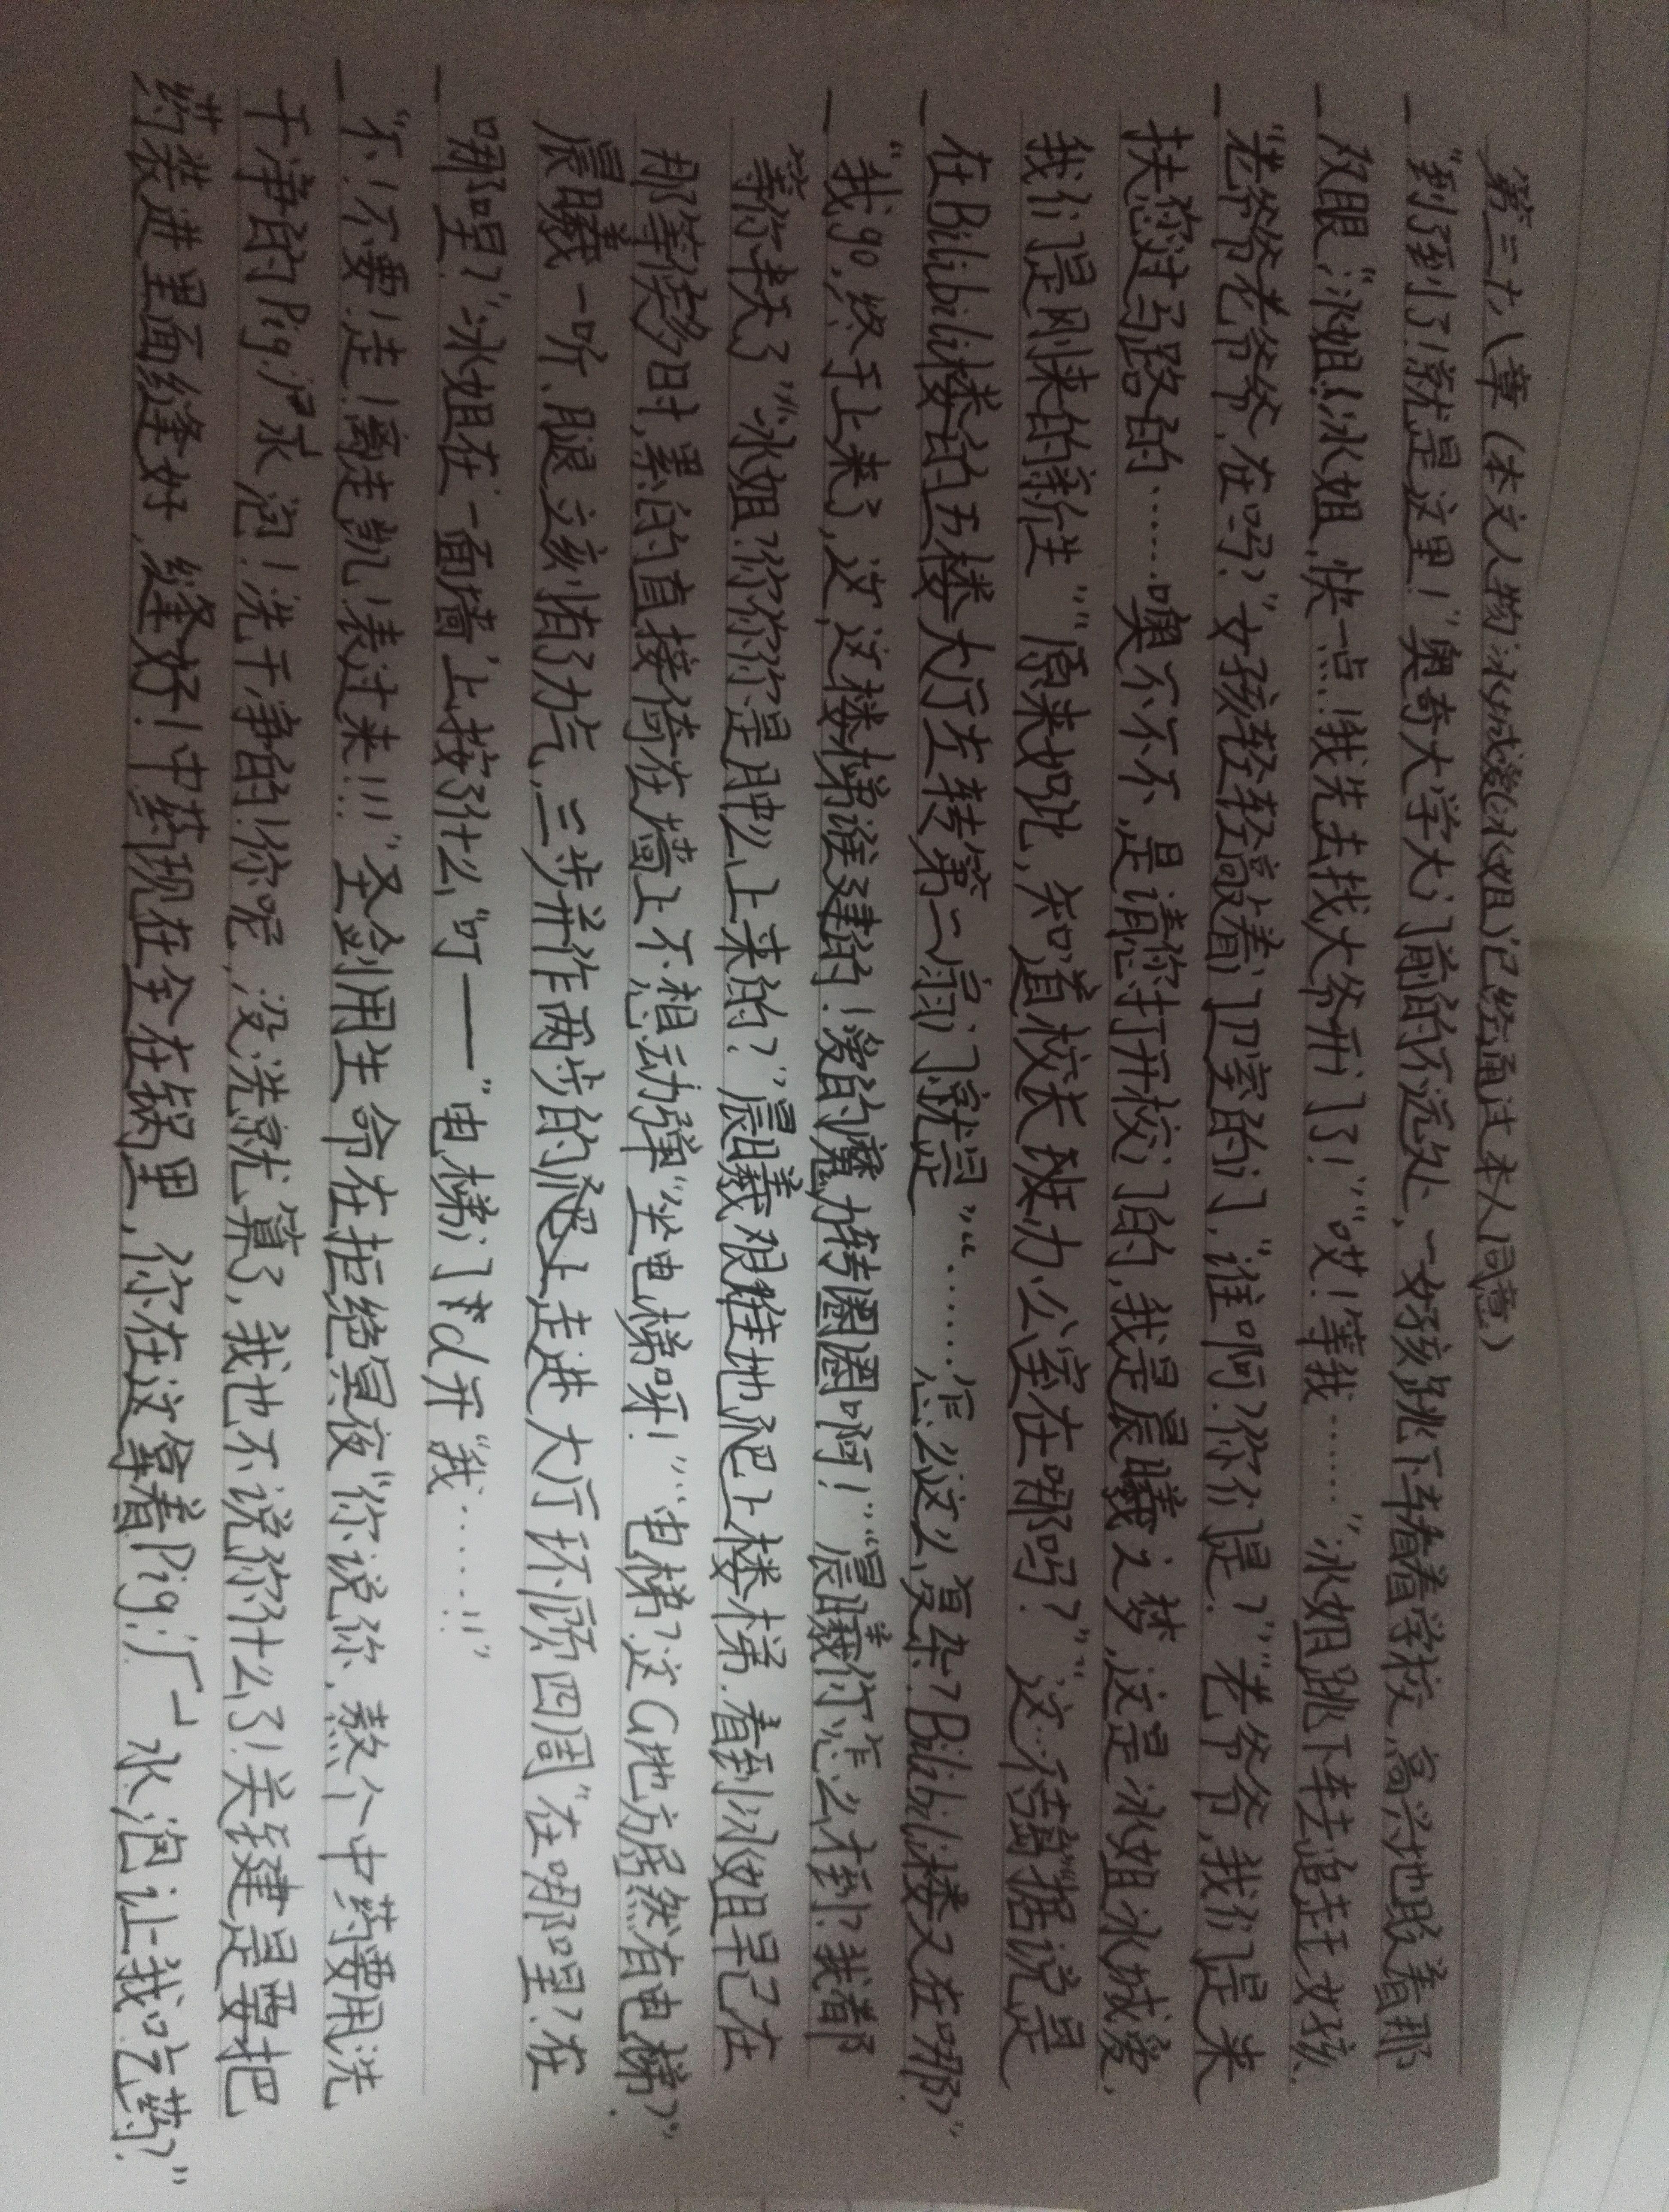 第三十八章(本文人物:冰城爱(冰姐)已经通过本人同意)
“到了到了!就是这里!”奥奇大学大门前的不远处,一女孩跳下车看着学校,高兴地眨着那
双眼,“冰姐!冰姐,快一点!我先去找大爷开门了!”“哎!等我……”冰姐跳下车去追赶女孩.
“老爷爷老爷爷,在吗?”女孩轻轻敲着门卫室的门,“谁啊?你们是?”“老爷爷,我们是来
扶您过马路的……噢不不不,是请您打开校门的,我是晨曦之梦,这是冰姐冰城爱,
我们是刚来的新生”“原来如此,知道校长办公室在哪吗?”“这…不清楚”“据说是
在Bilibili楼的五楼大厅左转第二扇门就是”“……怎么这么复杂?Bilibili楼又在哪?”
“我go,终于上来了,这,这楼梯谁建的!爱的魔力转圈圈啊!”“晨曦你怎么才到?我都
等你半天了”“冰姐?你你你是肿么上来的?”晨曦艰难地爬上楼梯.看到冰姐早已在
那等候多时,累的直接倚在墙上不想动弹“坐电梯呀!”“电梯?这G地方居然有电梯?”
晨曦一听,腿立刻有了力气,三步并作两步的爬上走进大厅环顾四周“在哪呢?在
哪呢?”冰姐在一面墙上按了什么“叮——”电梯门打开“我……!!”
“不!不要!走!离走凯!表过来!!!”圣剑用生命在拒绝夜“你说你,熬个中药要用洗
干净的Pig.尿水泡!洗干净的!你呢,没洗就算了,我也不说你什么了!关键是要把
药装进里面缝好,缝好!中药现在全在锅里,你在这拿着Pig.尿水泡让我吃药?”